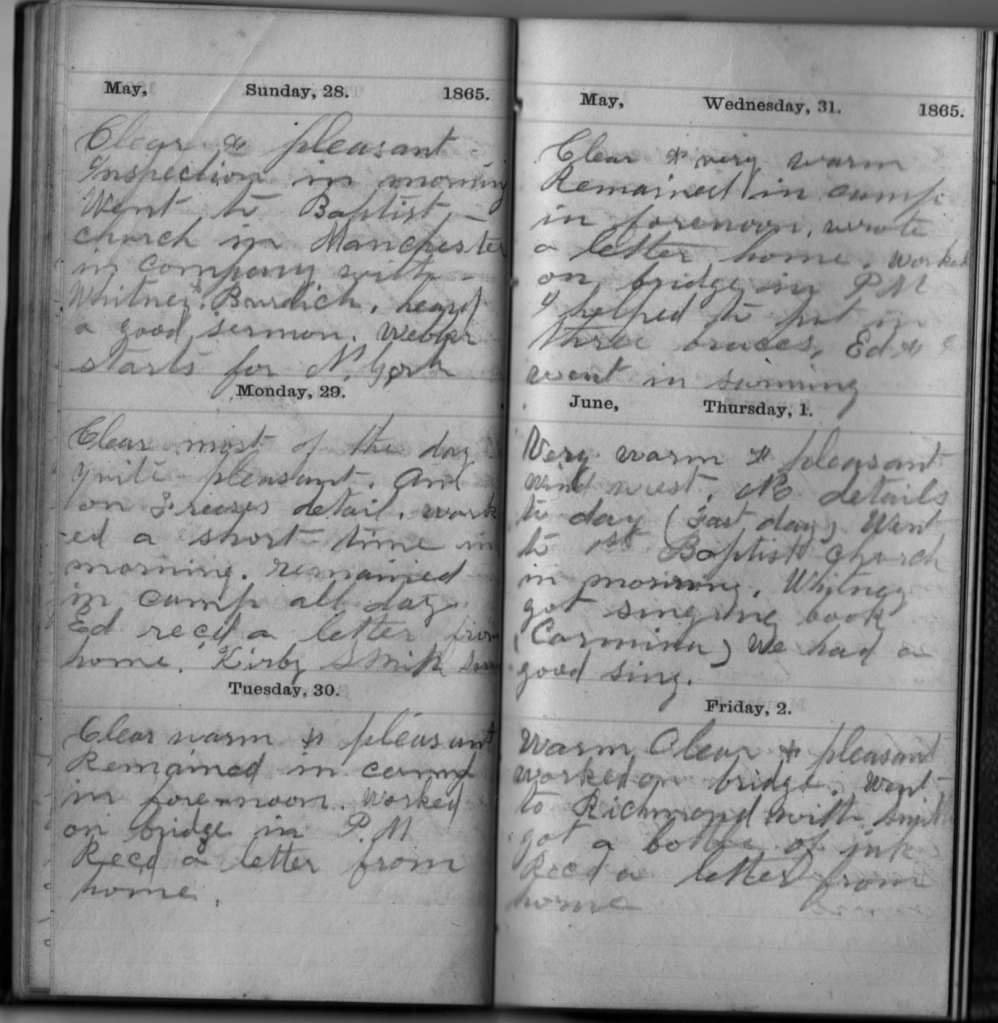 May, Sunday, 28. 1865.
Clear & pleasant
Inspection in morning
Went to Baptist
church in Manchester
in company with
Whitney. Burdich, heard
a good sermon. Webber
starts for N. York
Monday, 29.
Clear most of the day
quite pleasant. Am
on detail. work
ed a short time in
morning. remained
in camp all day
Ed recd a letter from
home. Kirby Smith
Tuesday, 30.
Clear warm & pleasant
Remained in camp
in fore-noon. Worked
on bridge in P.M
Recd a letter from
home.
May, Wednesday, 31. 1865.
Clear & very warm
Remained in camp
in forenoon, wrote
a letter home. worked
on bridge in PM
helped to put in
three braces, Ed &
went in swiming
June, Thursday, 1.
Very warm & pleasant
wind west. No details
to day (Fast day) Went
to 1st Baptist church
in morning. Whitney
got singing book
(Carmina) we had a
good sing.
Friday, 2.
Warm Clear & pleasant
worked on bridge. Went
to Richmond with Smith
got a bottle of ink
Recd a letter from
home